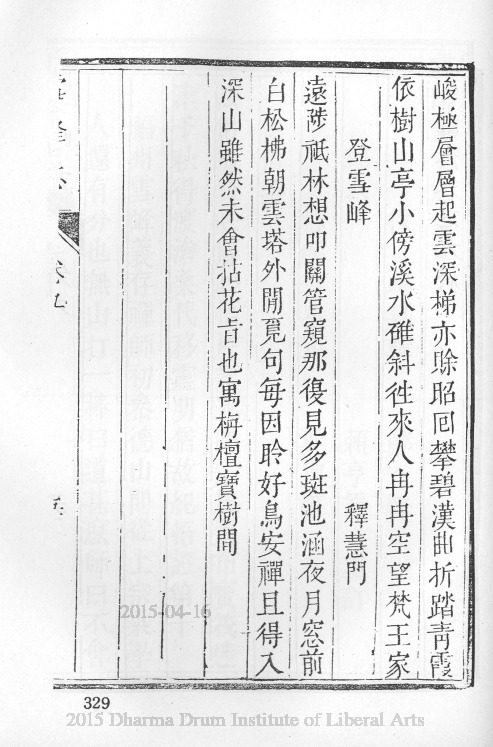 峻極層層起雲深梯亦賒昭回攀碧漢曲折踏青霞
依樹山亭小傍溪水碓斜徃來人冉冉空望梵王家
登雪峰 釋慧門
遠陟祗林想叩關管窺那復見多斑池涵夜月窓前
白松梻朝雲塔外閒覓句每因聆好鳥安禪且得入
深山雖然未會拈花旨也寓栴檀寶樹間
卷九
2015-04-16
329
2015 Dharma Drum Institute of Liberal Arts